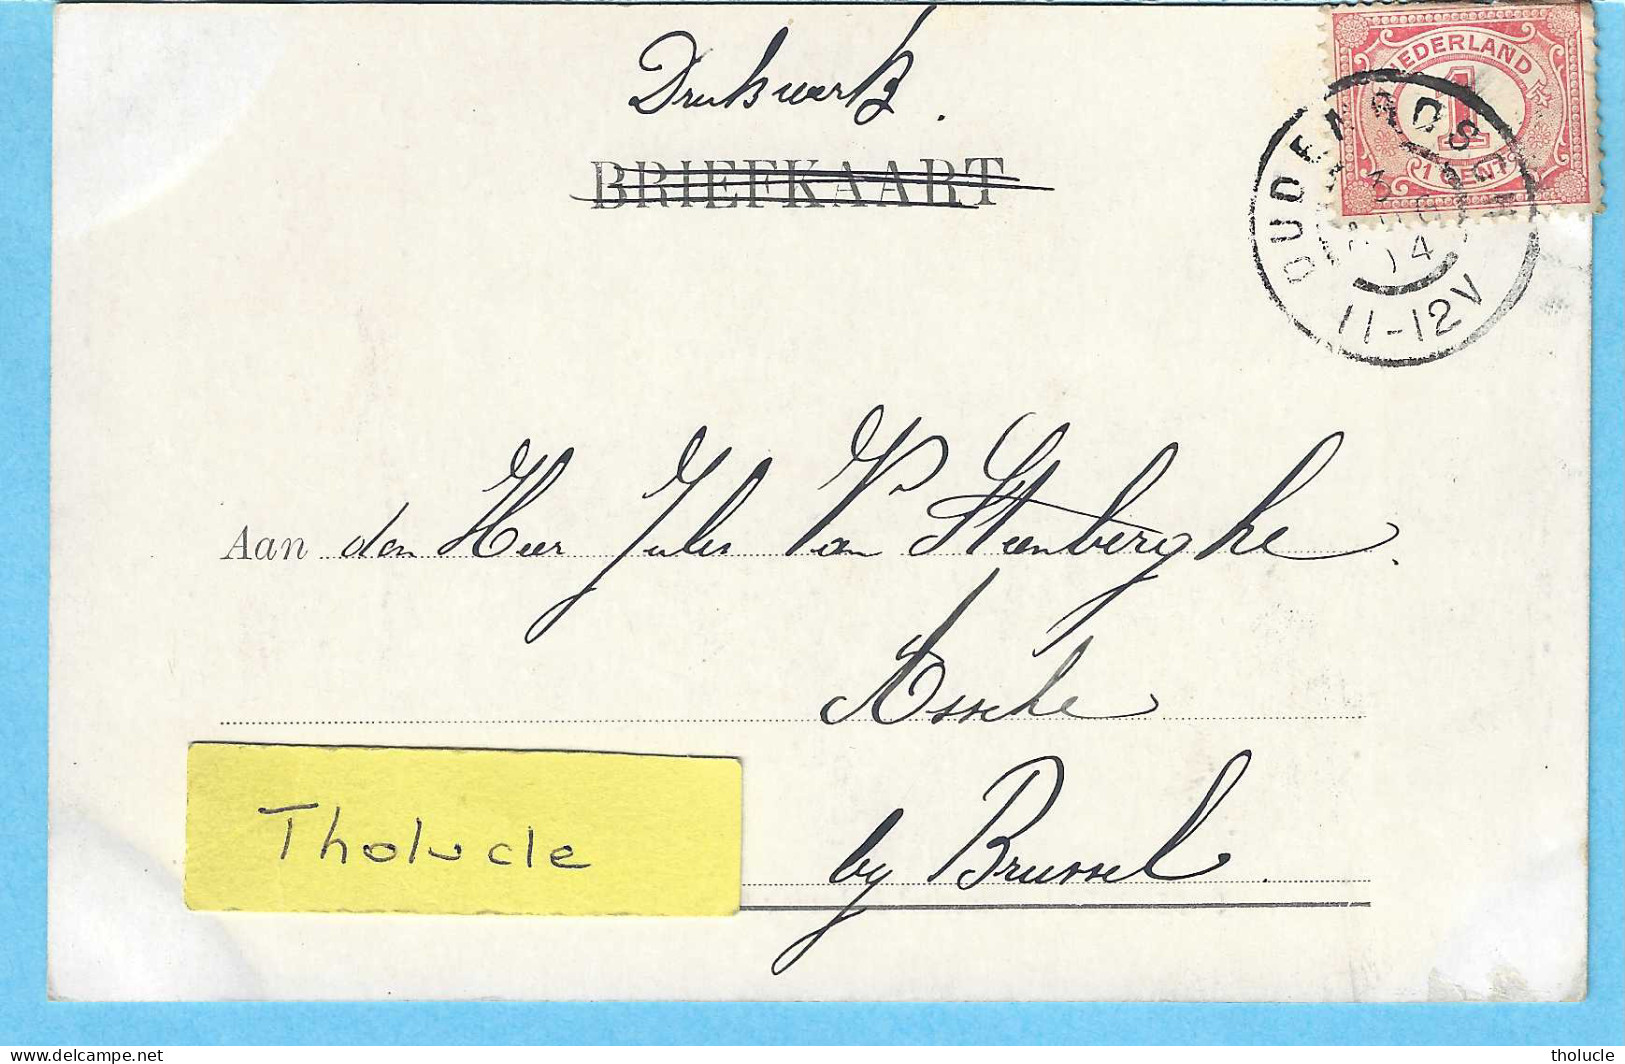 Drukwerk.
BRIEFKAART
NEDERLAND
1
1 CENT
OUDENBOSCH
3
04
11-12V
Aan den Heer Jules Van Steenberghe.
Assche
by Brussel.
Tholucle
www.delcampe.net
tholucle